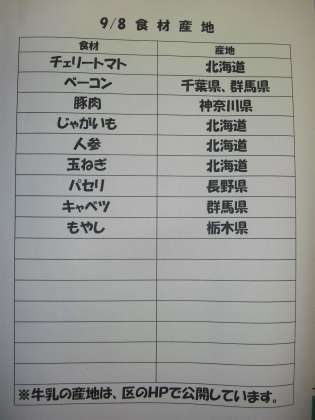 9/8 食材産地
食材 産地
チェリートマト 北海道
ベーコン 千葉県、群馬県
豚肉 神奈川県
じゃがいも 北海道
人参 北海道
玉ねぎ 北海道
パセリ 長野県
キャベツ 群馬県
もやし 栃木県
※牛乳の産地は、区のHPで公開しています。